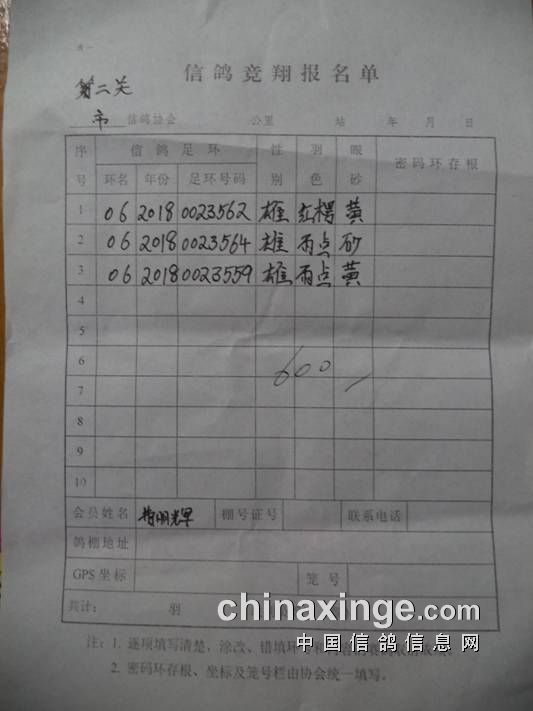 表一
信鸽竞翔报名单
第二关
市 信鸽协会 公里 站 年 月 日
序号 信鸽足环 性别 羽色 眼砂 密码环存根
环名 年份 足环号码
1 06 2018 0023562 雄 红楞 黄
2 06 2018 0023564 雄 雨点 砂
3 06 2018 0023559 雄 雨点 黄
4
5
6
600
7
8
9
10
会员姓名 明辉 棚号证号 联系电话
鸽棚地址
GPS坐标 笼号
共计: 羽
chinaxinge.com
中国信鸽信息网
注: 1. 逐项填写清楚、涂改、错填环号
2. 密码环存根、坐标及笼号栏由协会统一填写。